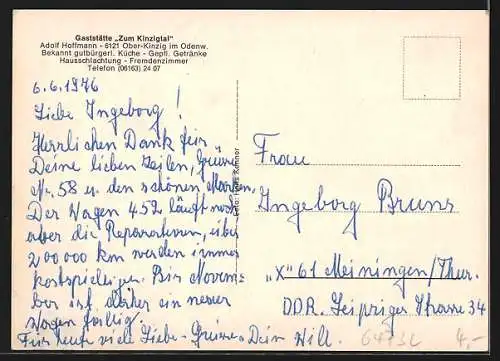 Gaststätte „Zum Kinzigtal"
Adolf Hoffmann - 6121 Ober-Kinzig im Odenw.
Bekannt gutbürgerl. Küche - Gepfl. Getränke
Hausschlachtung - Fremdenzimmer
Telefon (06163) 24 07
6.6.1976
Liebe Ingeborg!
Herrlichen Dank für
Deine lieben Zeilen, Grüsse
Nr. 58 u. den schönen
Der Wagen 452 läuft noch
aber die Reparaturen, über
200000 km werden immer
kostspieliger. Bis Novem-
ber ist daher ein neuer
Wagen fällig.
Für heute viele Liebe Grüsse Dein Will.
Frau
Ingeborg Bruns
„X" 61 Meiningen/Thür.
DDR. Leipziger Strasse 34
4,-